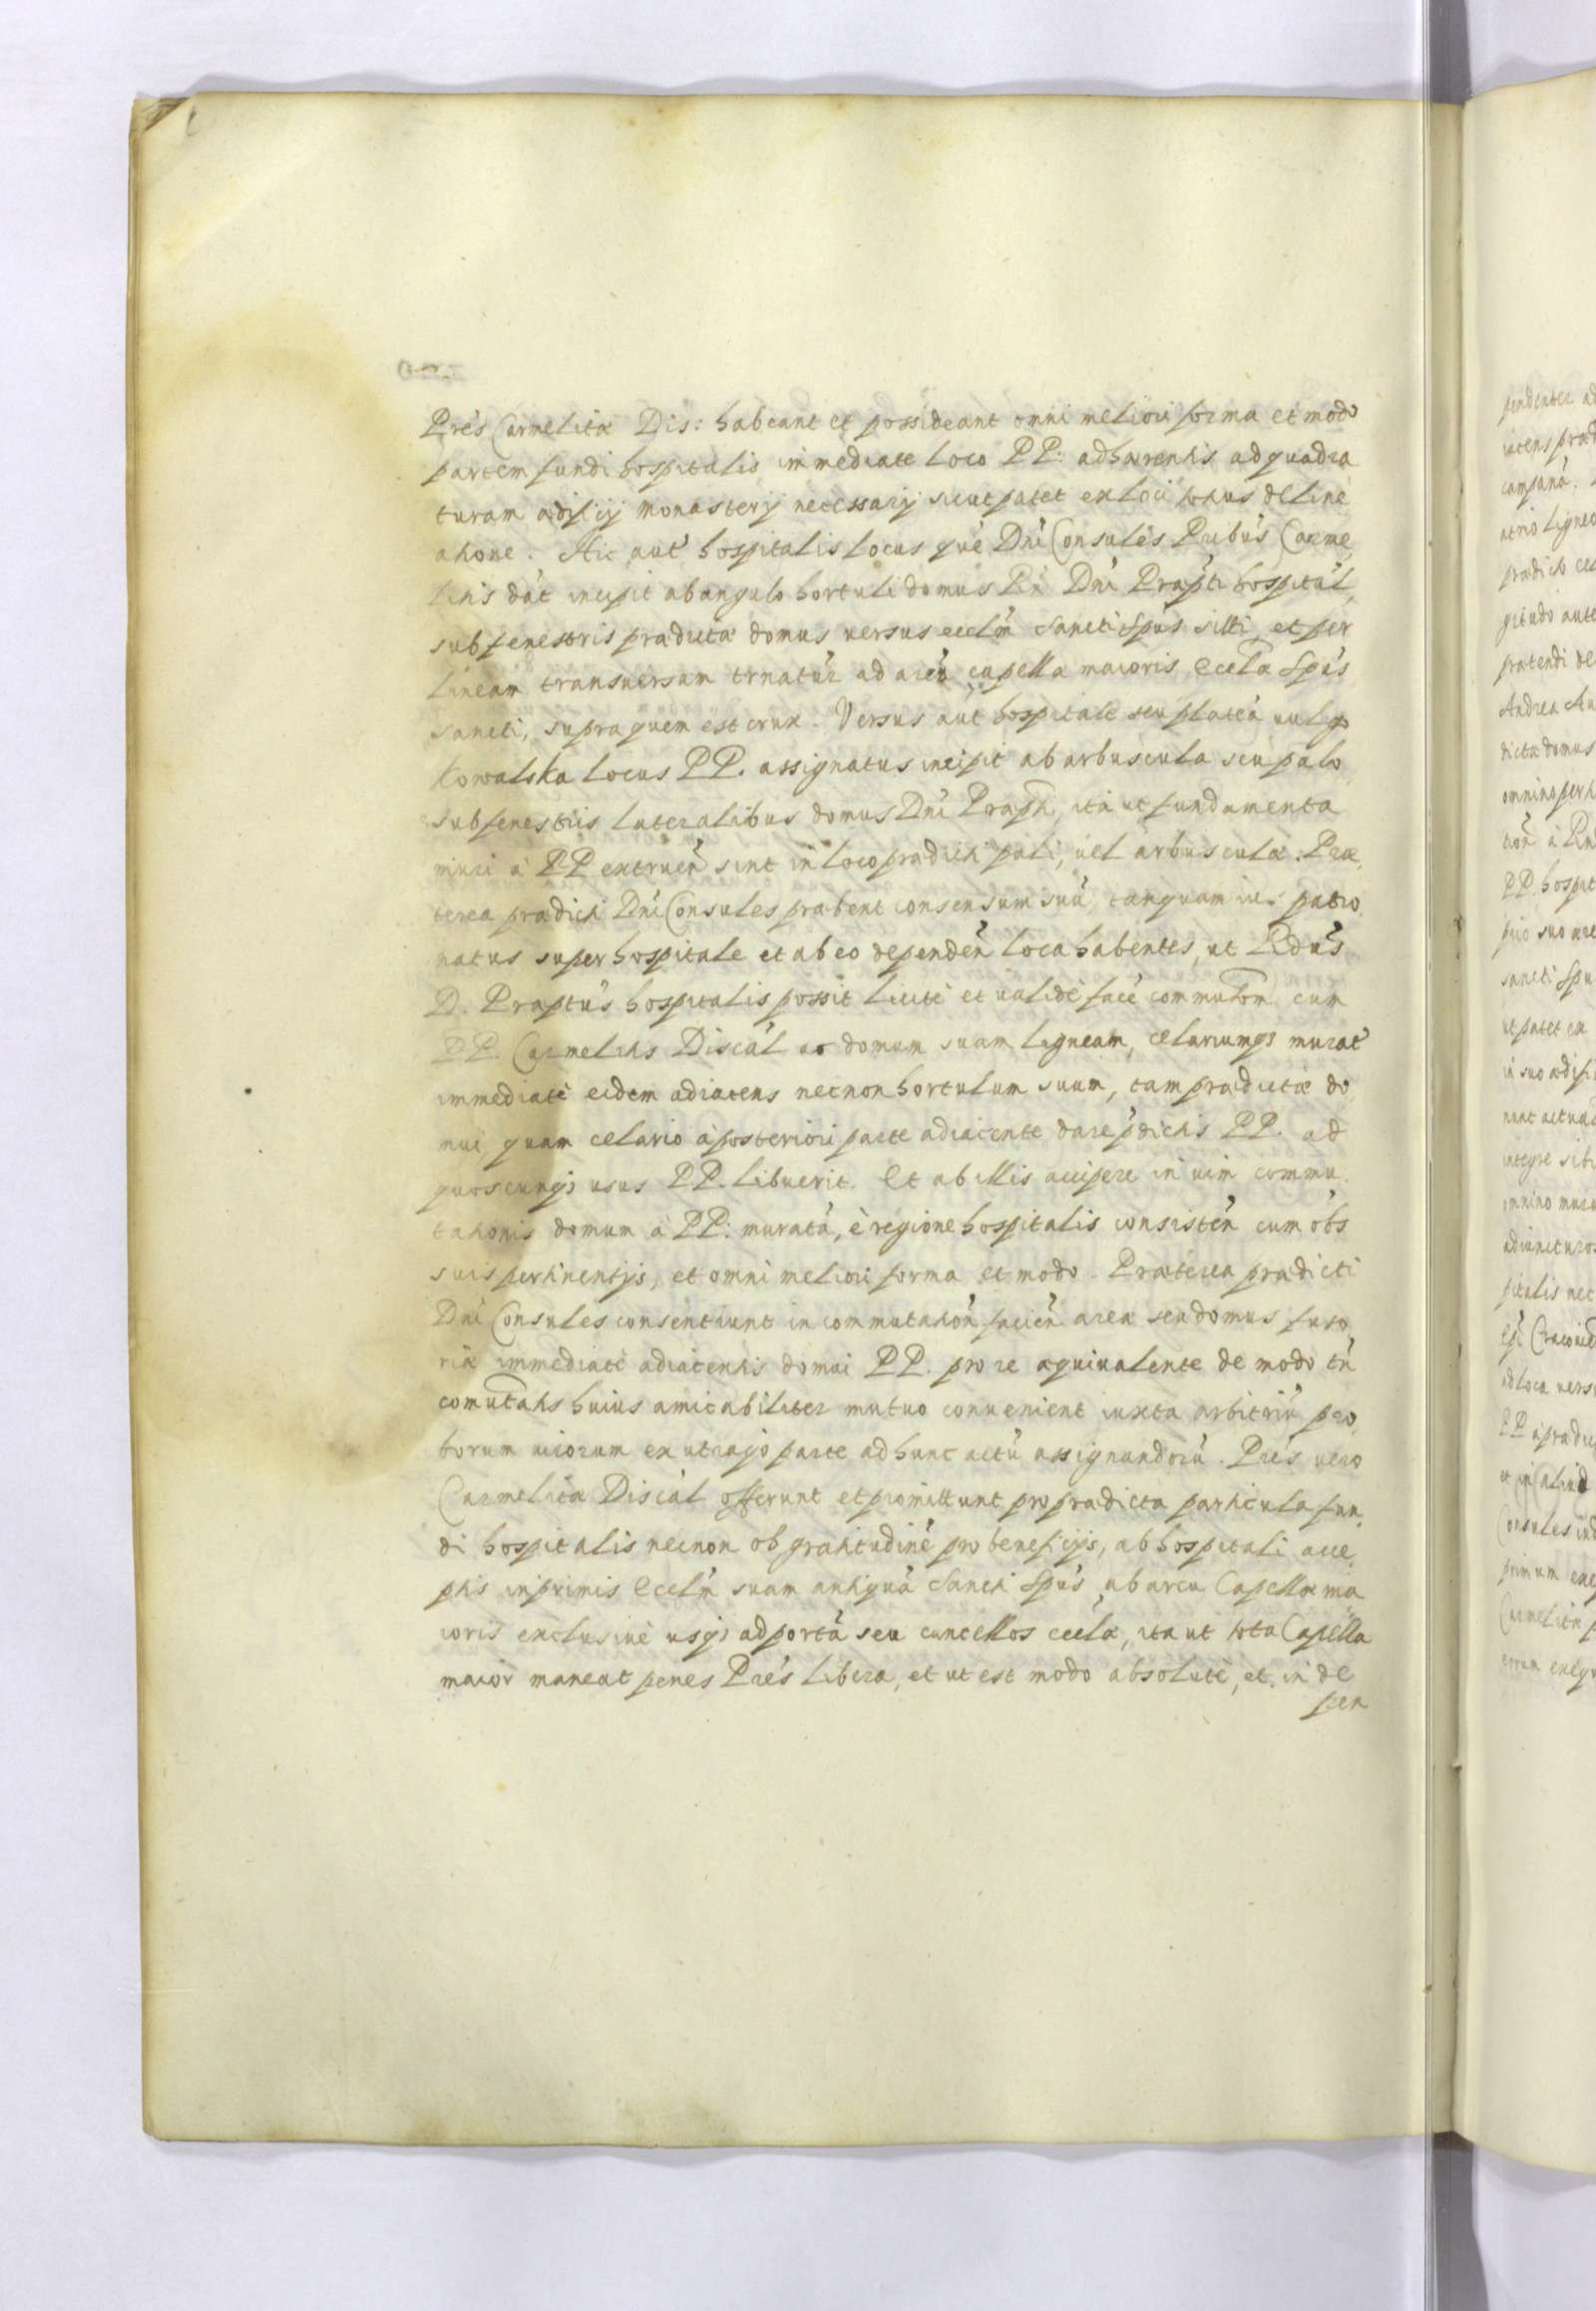 Prẽs Carmelitæ Dis: habeant et possideant omni meliori forma et modo
partem fundi hospitalis immediate loco PP: adhærentis ad quadra
turam ædificij monasterij necessarij sicut patet ex loci totius deline
atione. Hic aut̃ hospitalis locus quẽ Dnĩ Consules Pribus Carme
litis dãt incipit ab angulo hortuli domus Rñ Dnĩ Præpti hospitãl,
sub fenestris prædictæ domus versus eccl̃m Sancti Spũs silli, et per
lineam transuersam trnatũr ad arcũ capellæ maioris, Eccl̃a Spũs
Sancti, supra quem est crux. Versus aũt hospitale seu plateã uulgo
Kowalska locus PP. assignatus incipit ab arbuscula seu palo
sub fenestris lateralibus domus Dnĩ Præpti, ita ut fundamenta
muri à PP extruen̄ sint in loco prædicti pali, uel arbusculæ. Præ,
terea prædicti Dnĩ Consules præbent consensum suũ tanquam ius patro,
natus super hospitale et ab eo dependen̄ loca habentes, ut Rdũs
D. Præptũs hospitalis possit licitè et ualidè facẽ commutõm cum
PP. Carmelitis Discãl domum suam ligneam, celariumqȝ muratũ
immediatè eidem adiacens necnon hortulum suum, tam prædictæ do
mui quam celario à posteriori parte adiacente dare p̃dictis PP. ad
quoscunqȝ usus PP. libuerit. Et ab illis accipere in uim commu,
tationis domum à PP: muratã, è regione hospitalis consisten̄ cum õbs
suis pertinentijs, et omni meliori forma et modo. Præterea prædicti
Dnĩ Consules consentiunt in commutation̄ facien̄ areæ seu domus fuso,
riæ immediatè adiacentis domui PP. pro re æquiualente de modo tñ
com̃utatis huius amicabiliter mutuo conuenient iuxta arbitriũ pro,
borum uirorum ex utraqȝ parte ad hunc actũ assignandorũ. Prẽs uero
Carmelitæ Discãl offerunt et promittunt pro prædicta particula fun,
di hospitalis necnon ob gratitudinẽ pro beneficijs, ab hospitali acce,
ptis inprimis Eccl̃m suam antiquã Sancti Spũs ab arcu Capellæ ma
ioris exclusiuè usqȝ ad portã seu cancellos eccl̃æ, ita ut tota Capella
maior maneat penes Prẽs libera, et ut est modo absolutè, et in de
pen